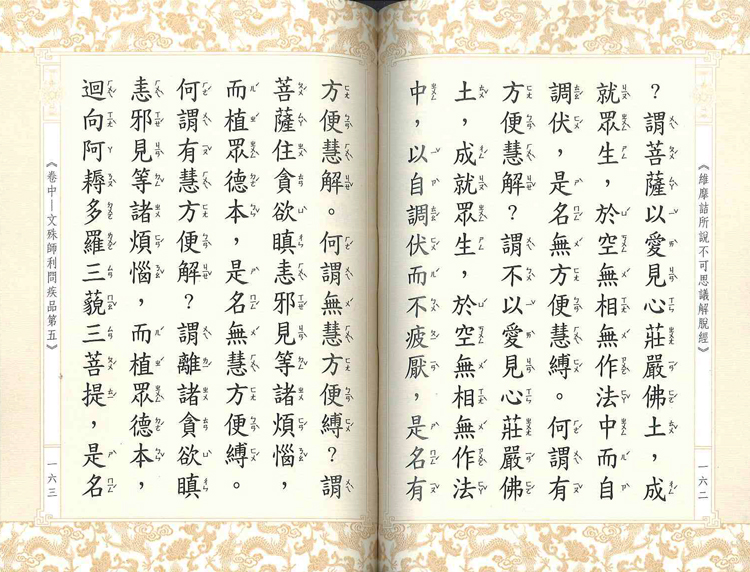 《維摩詰所說不可思議解脫經》
一六二
？謂菩薩以愛見心莊嚴佛土，成
就眾生，於空無相無作法中而自
調伏，是名無方便慧縛。何謂有
方便慧解？謂不以愛見心莊嚴佛
土，成就眾生，於空無相無作法
中，以自調伏而不疲厭，是名有
方便慧解。何謂無慧方便縛？謂
菩薩住貪欲瞋恚邪見等諸煩惱，
而植眾德本，是名無慧方便縛。
何謂有慧方便解？謂離諸貪欲瞋
恚邪見等諸煩惱，而植眾德本，
迴向阿耨多羅三藐三菩提，是名
《卷中—文殊師利問疾品第五》
一六三